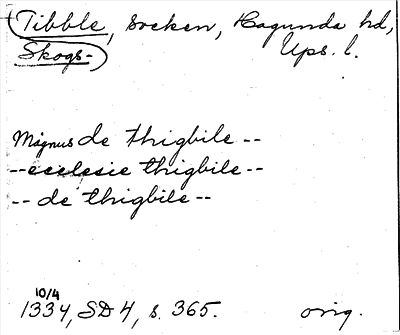 Tibble, socken, Hagunda hd,
Skogs- Ups. l.
Magnus de thigbile --
-- ecclesie thigbile --
-- de thigbile --
10/4
1334, SD 4, s. 365. orig.